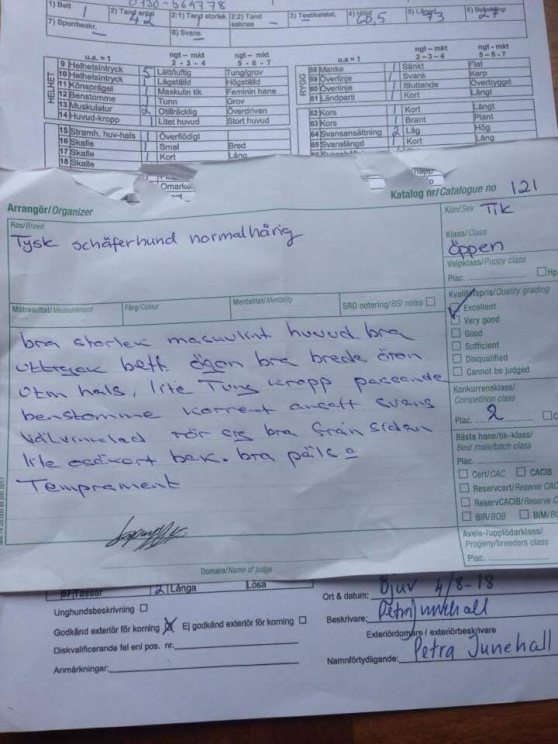 0730-564778
1) Bett 1
2) Tand antal 42
2:1) Tand storlek
2:2) Tand
3) Testiklatet,
4) Höjd 60,5
5) Längd 73
27
7) Sportbeskr,
8) Svans
HELHET
u.a. = 1
ngt – mkt
2 - 3 - 4
ngt – mkt
5 - 6 - 7
9 Helhetsintryck 5 Lätt/luftig Tung/grov
10 Helhetsintryck Lågställd Högställd
11 Könsprägel 1 Maskulin tik Feminin hane
12 Benstomme 1 Tunn Grov
13 Muskulatur 2 Otillräcklig Överdriven
14 Huvud-kropp 1 Litet huvud Stort huvud
15 Stramh. huv-hals 1 Överflödigt
16 Skalle 1 Smal Bred
17 Skalle 1 Kort Lång
18 Skalle
RYGG
u.a. = 1
ngt – mkt
2 – 3 - 4
ngt – mkt
5 - 6 - 7
58 Manke Sänkt Flat
59 Överlinje 1 Svank Karp
60 Överlinje Sluttande Överbyggd
61 Ländparti 1 Kort Långt
62 Kors 1 Kort Långt
63 Kors 1 Brant Plant
64 Svansansättning 2 Låg Hög
65 Svanslängd Kort Långt
Arrangör/Organizer
Katalog nr/Catalogue no 121
Ras/Breed
Tysk schäferhund normalhårig
Kön/Sex Tik
Klass/Class
Öppen
Valpklass/Puppy class
Plac. Hp
Mätresultat/Measurement
Färg/Colour
Mentalitet/Mentality
SRD notering/BSI notes
Kvalitetspris/Quality grading
Excellent
Very good
Good
Sufficient
Disqualified
Cannot be judged
bra storlek masculint huvud bra
uttryck bett ögon bra brede öron
utm hals, lite Tung kropp passende
benstomme korrent ansatt svans
välvinklad rör sig bra från sidan
lite bak. bra päls o
Temprament
Konkurrensklass/
Competition class
Plac. 2
Bästa hane/tik-klass/
Best male/bitch class
Plac.
Cert/CAC CACIB
Reservcert/Reserve CAC
ReservCACIB/Reserve CAC
BIR/BOB BIM/BO
Avels-/uppfödarklass/
Progeny/breeders class
Plac.
Domare/Name of judge
Tassar 2 Långa Lösa
Unghundsbeskrivning
Godkänd exteriör för korning Ej godkänd exteriör för korning
Diskvalificerande fel enl pos. nr.
Anmärkningar:
Ort & datum: Bjuv 4/8-18
Beskrivare: Petra Junehall
Exteriördomare / exteriörbeskrivare
Namnförtydligande: Petra Junehall